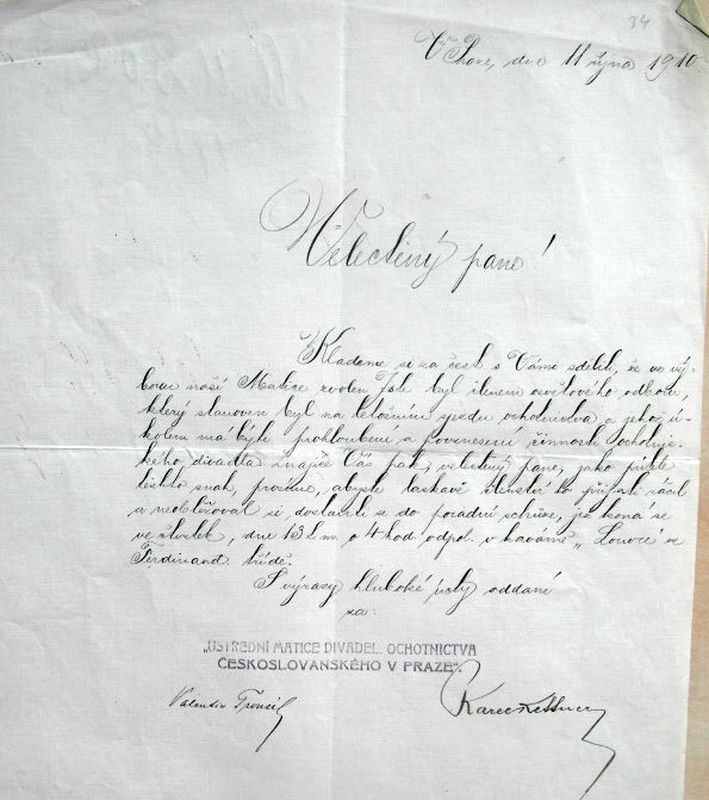 34
V Praze, dne 11 října 1910.
Velectěný pane!
Klademe si za čest s Vámi sděliti, že ve vý-
boru naší Matice zvolen Jste byl členem osvětového odboru,
který stanoven byl na letošním sjezdu ochotnictva a jehož ú-
kolem má býti prohloubení a povznesení činnosti ochotnic-
kého divadla. Znajíce Vás pak, velectěný pane, jako přítele
těchto snah, prosíme, abyste laskavě členství to přijati ráčil
a neobtěžoval si dostaviti se do poradní schůze, jež koná se
ve čtvrtek, dne 13 t. m. o 4 hod. odpol. v kavárně „Louvre" ve
Ferdinand. třídě.
S výrazy hluboké pocty oddaní
za:
„ÚSTŘEDNÍ MATICE DIVADEL. OCHOTNICTVA
ČESKOSLOVANSKÉHO V PRAZE".
Valentin
Karel